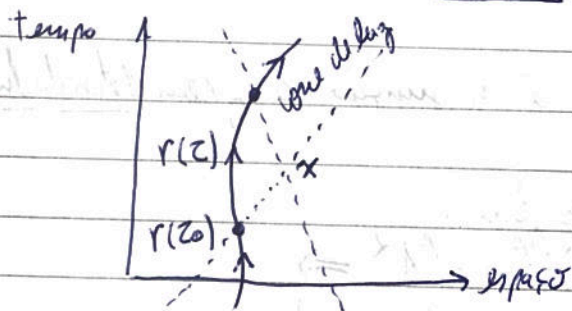 tempo
cone de luz
r(τ)
x
r(τ₀)
espaço